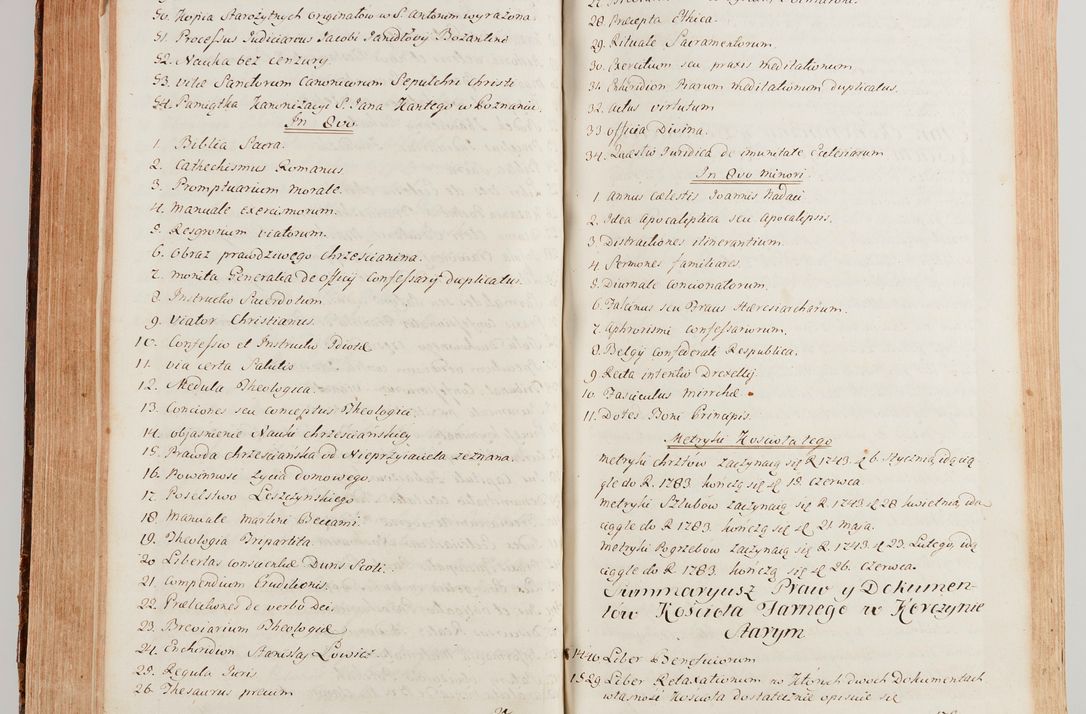 50. Kopia Starożytnych Originałow w S. Antonim wyrażona
51. Processus Iudiciarius Iacobi Ianidłovij Bozantini
52. Nauka bez cenzury
53. Vitæ Sanctorum Canonicorum Sepulchri Christi
54. Pamiątka Kanonizacyi S. Jana Kantego w Poznaniu.
In 8vo
1. Biblia Sacra.
2. Cathechismus Romanus.
3. Promptuarium morale.
4. Manuale exorcismorum.
5. viatorum.
6. Obraz prawdziwego chrześcianina.
7. Monita Generalia de officÿ Confessarÿ duplicatus.
8. Instructio Sacerdotum.
9. Viator Christianus.
10. Confessio et Instructio Idiotæ
11. via certa Salutis
12. Medula Theologica.
13. Conciones seu conceptus Theologici.
14. objasnienie Nauki chrześciańskiey
15. Prawda chrześciańska od Nieprzyiaciela zeznana.
16. Powinnosc życia domowego.
17. Poselstwo Leszczynskiego
18. Manuale Martini Beccami.
19. Theologia Tripartita.
20 Libertas conscientiæ Duns Scoti.
21. Compendium Eruditionis.
22. Prælectiones de verbo dei.
23. Breviarium Theologiæ
24. Enchiridion Stanislaj Lowicz
25. Regula Iuris
26. Thesaurus precum
28. Præcepta Ethica.
29. Rituale Sacramentorum.
30. Exercitium seu praxis meditationum
31. Enkiridion Piarum meditationum duplicatus.
32. Actus virtutum
33 officia Divina.
34. Quæstio Iuridica de imunitate Ecclesiarum
In 8vo minori.
1. Annus cælestis Ioannis Nadaci
2. Idea Apocaliptica seu Apocalipsis.
3 Distractiones itinerantium
4. Sermones familiares
5. Diurnale Concionatorum.
6. Facinus seu Fraus Hæresiarcharum.
7. Aphrorismi confessariorum.
8. Belgÿ Confæderati Respublica.
9 Recta intentio Drexelÿ
10 Fasciculus mirrhæ
11. Dotes Boni Principis.
Metryki Kosciola tego
Metryki chrztów zaczynaią się R 1743. d 6. stycznia, idą cią
gle do R. 1783 kończą się d 18. czerwca
Metryki Szlubów zaczynaią się R 1743 d 28 kwietnia, idą
ciągle do R 1783. kończą się d 21 maja.
Metryki Pogrzebow zaczynaią się R 1743. d 23. Lutego, idą
ciągle do R 1783. kończą się d 26. czerwca.
Summaryusz Praw y Dokumen-
tów Kościoła Farnego w Korczynie
Starym
1440 Liber Beneficiorum
1529 Liber Retaxationum w których dwoch Dokumentach
własnosi Kościoła dostatecznie opisuie się